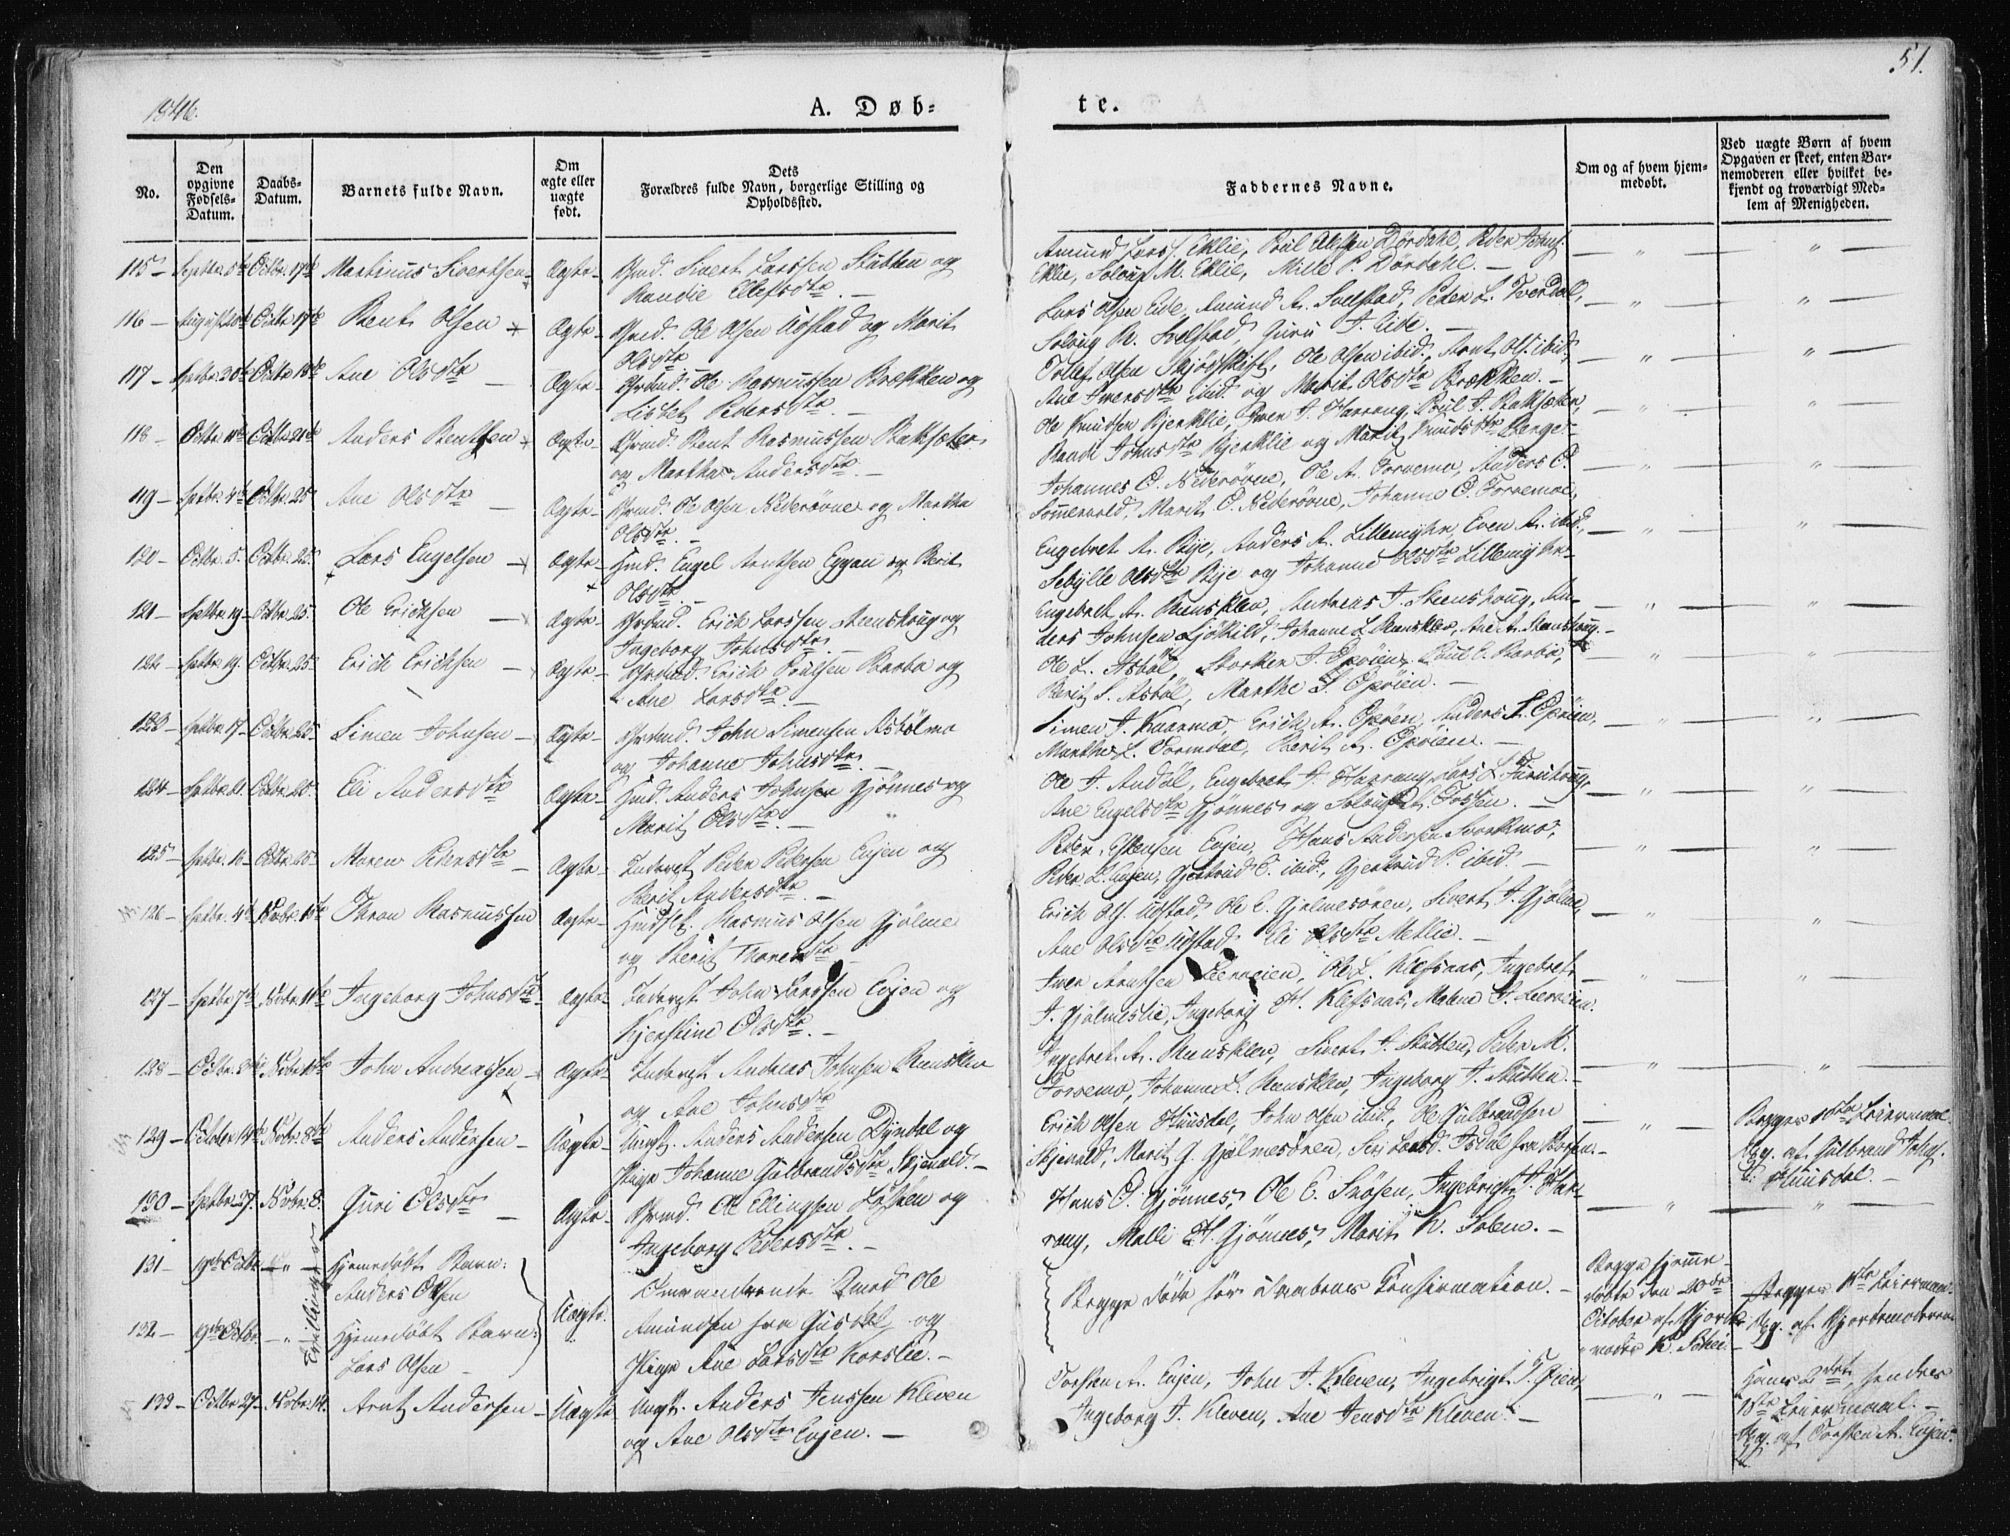 1846.
A. Døb-
te.
51.
No.
Den opgivne Fødsels-Datum.
Daabs-Datum.
Barnets fulde Navn.
Om ægte eller uægte født.
Dets Forældres fulde Navn, borgerlige Stilling og Opholdssted.
Faddernes Navne.
Om og af hvem hjem-medøbt.
Ved uægte Børn af hvem Opgaven er skeet, enten Bar-nemoderen eller hvilket be-kjendt og troværdigt Med-lem af Menigheden.
115 – Septbr. 5te Octbr. 17de Martinus Sivertsen Ægte – Gmd. Sivert Larssen Stutten og
Randie Ellefsdtr. –
Amund Larss. Eklie, Poul Ellefsen Dørdahl, Peder Johns.
Eklie, Solvug M. Eklie, Mille P. Dørdahl. –
116 – August Octbr. 17de Bent Olsen Ægte – Ole Olsen Udstad og Marit
Olsdtr
Lars Olsen Eide, Amund A. Solstad, Peder L. Tverdal,
Solvug M. Solstad, Guru J. Eide. –
117 – Septbr. 20de Octbr. 18de Ane Olsdtr – Ægte – Ole Rasmussen Brækken og
Lisbet Pedersdtr. –
Ole Olsen ibid., Arnt Ols. ibid.,
Ane Iversdtr ibid. og Marit Olsdtr Brækken. –
118 – Octbr. Octbr. 21de Anders Bentsen Ægte – Bent Rasmussen Baksæter
og Martha Andersdtr –
Ole Knudsen Bjerklie, Iver J. Harrang, Poul J. Baksæter,
Randi Johnsdtr Bjerklie og Marit Knudsdtr
119 – Septbr. 4de Octbr. 25 Ane Olsdtr – Ægte – Ole Olsen Nederøvne og Martha
Olsdtr. –
Johannes O. Nederøvne, Ole A. Forvemo, Anders O.
Sommervold, Marit O. Nederøvne, Johanne O. Forvemoe,
120 – Octbr. 5. Octbr. 25. Lars Engelsen Ægte – Hmd. Engel Arntsen Eggan og Berit
Olsdtr. –
Engebret A. Bye, Anders A. Lillemyhr, Even A. ibid.,
Sebylle Olsdtr Bye og Johanne Olsdtr Lillemyhr.
121 – Septbr. 19 – Octbr. 25. Ole Ericksen – Ægte – Erick Larssen Steenshoug og
Ingeborg Johnsdtr. –
Engebret A. Runsklev, Andreas J. Steenshoug, An-
ders Johnsen, Johanne L. Runsklev, Ane A. Steenshoug. –
122 – Septbr. 19. Octbr. 25. Erick Ericksen – Ægte – Erick Poulsen Barbo og
Ane Larsdtr. –
Ole L. Asbøl, Storker J. Opøien, Poul E. Barbo,
Berit S. Asbøl, Marthe S. Opøien. –
123 – Septbr. 17 – Octbr. 25. Simen Johnsen – Ægte – John Simensen Asbølmo
og Johanne Johnsdtr. –
Simen J. Kaarmo, Erick A. Opøien, Anders A. Opøien,
Marthe L. Formdal, Berit A. Opøien. –
124 – Septbr. 21. Octbr. 25. Eli Andersdtr Ægte – Hmd. Anders Johnsen Gjønnes og
Marit Olsdtr. –
Ole J. Aadøl, Engebret J. Harrang, Lars L. Furuhoug,
Ane Engelsdtr Gjønnes og Solvug
125 – Septbr. Octbr. 25 – Maren Pedersdtr – Ægte – Inderst Peder Pedersen Evjen og
Berit Andersdtr –
Peder Estensen Evjen, Hans Andersen Svorkmo,
Peder L. Evjen, Gjertrud E. ibid., Gjertrud P. ibid. –
126 – Septbr. 4de Novbr. 1ste Thron Rasmussen Ægte – Rasmus Olsen Gjølme
og Berit Thronsdtr –
Erich Ols. Udstad, Ole E. Gjølmesøren, Sivert J. Gjølme,
Ane Olsdtr Udstad Eli Olsdtr Metlie. –
127 – Septbr. 7de Novbr. 1ste Ingeborg Johnsdtr – Ægte – Inderst John Larssen Evjen og
Kjerstine Olsdtr. –
Iver Arntsen Leerøien, Ole L. Klefsaas, Ingebret
J. Gjølmeslie, Ingeborg H. Klefsaas, Malene J. Leerøien.
128 – Octbr. Novbr. John Andreassen – Ægte – Inderst Andreas Johnsen Runsklev
og Ane Johnsdtr
Ingebret A. Runsklev, Sivert J. Stutten, Peder M.
Forvemo, Johanne L. Runsklev, Ingeborg J. Stutten. –
129 – October 14de Novbr. 8de Anders Andersen – Uægte – Ungk. Anders Andersen Dyndal og
Pige Johanne Gulbrandsdtr Skjenald. –
Erich Olsen Huusdal, John Olsen ibid., Ole Gulbrandsen
Skjenald, Marit G. Gjølmesøren,
Begges 1ste Leiermaal.
Opg. af Gulbrand Johns.
Huusdal. –
130 – Septbr. 27. Novbr. 8. Guri Olsdtr – Ægte – Ole Ellingsen Løkken og
Ingeborg Pedersdtr. –
Hans O. Gjønnes, Ole E. Snøsen, Ingebrigt J. Har-
rang, Malli H. Gjønnes, Marit K. Solem. –
Tvillinger
131 – 19de Octbr. – " – Hjemedøbt Barn:
Anders Olsen
132 – 19de Octbr. – " Hjemedøbt Barn:
Lars Olsen –
Uægte. Omvandrende Qvæd Ole
Amundsen fra Gusdal og
Pige Ane Larsdtr Korslie. –
Begge døde før Daabens Confirmation. –
Begge hjemme-
døbte den 20de
October af Gjorde-
moder K. Schei. –
Begges 1ste Leiermaal.
Opg. af Gjordemoderen
133 – Octbr. 27 – Novbr. 14. Arnt Andersen – Uægte Ungk. Anders Jenssen Kleven
og Ane Olsdtr Evjen. –
Torsten A. Evjen, John J. Kleven, Ingebrigt J. Øien,
Ingeborg J. Kleven, Ane Jensdtr Kleven. –
Hans 2det, hendes
1ste Leiermaal. –
Opg. af Torsten A. Evjen.